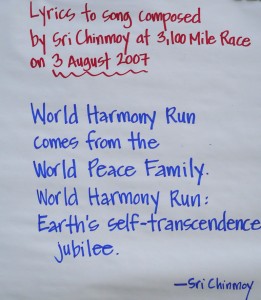 Lyrics to song composed
by Sri Chinmoy at 3,100 Mile Race
on 3 August 2007
World Harmony Run
comes from the
World Peace Family.
World Harmony Run:
Earth's self-transcendence
jubilee.
—Sri Chinmoy